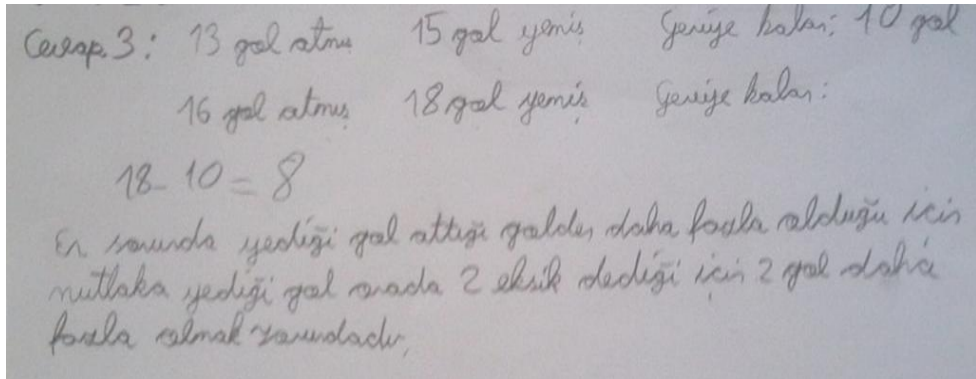 Cevap 3: 13 gol atmış 15 gol yemiş Geriye kalan: 10 gol
16 gol atmış 18 gol yemiş Geriye kalan:
18 - 10 = 8
En sonunda yediği gol attığı golden daha fazla olduğu için
mutlaka yediği gol orada 2 eksik dediği için 2 gol daha
fazla olmak zorundadır.